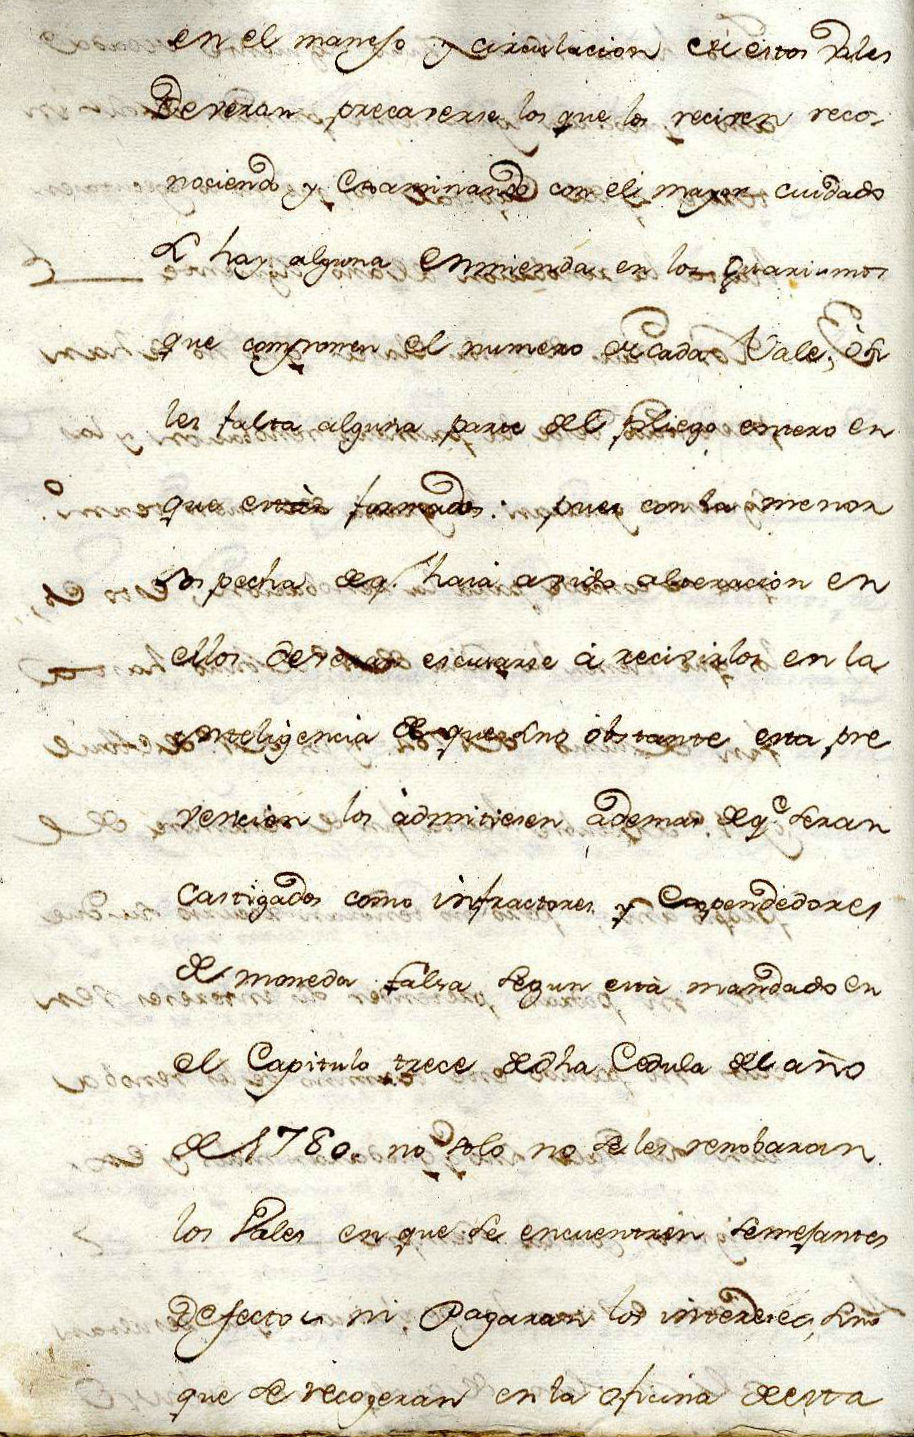 en el manejo y circulacion de estos Vales
Deveran precaverse los que los reciven reco-
nociendo y Examinando con el mayor cuidado
si hay alguna Enmienda en los guarismos
que componen el numero de cada Vale, ò si
les falta alguna parte del pliego entero en
que estàn formados: pues con la menor
Sospecha de q.e haia avido alteracion en
ellos deveran escusarse à recivirlos en la
inteligencia de que si no obstante esta pre
vencion los àdmitiesen ademas de q.e seran
Castigados como infractores y Expendedores
de moneda falsa segun està mandado en
el Capitulo trece de dha Cedula del año
de 1780. no solo no se les renobaran
los Vales en que se encuentren semejantes
Defectos ni Pagaran los intereses, sino
que se recogeran en la oficina de esta